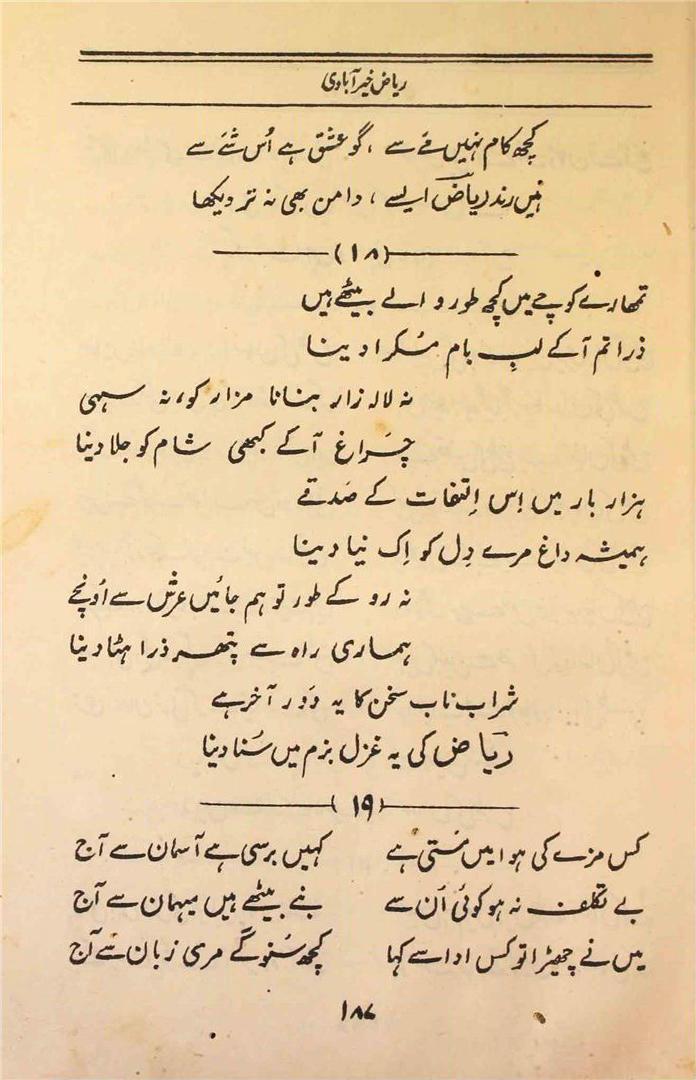 ریاض خیرآبادی
کچھ کام نہیں مَے سے ، گو عشق ہے اُس شَے سے
ہیں رند ریاضؔ ایسے ، دامن بھی نہ تر دیکھا
(۱۸)
تمھارے کوچے میں کچھ طور والے بیٹھے ہیں
ذرا تم آ کے لبِ بام مُسکرا دینا
نہ لالہ زار بنانا مزار کو، نہ سہی
چَراغ آ کے کبھی شام کو جلا دینا
ہزار بار میں اِس اِلتفات کے صَدقے
ہمیشہ داغ مرے دِل کو اِک نیا دینا
نہ روکے طور تو ہم جائیں عرش سے اُونچے
ہماری راہ سے پتھر ذرا ہٹا دینا
شراب ناب سخن کا یہ دَور آخر ہے
ریاضؔ کی یہ غزل بزم میں سُنا دینا
(۱۹)
کس مزے کی ہوا میں مَستی ہے کہیں برسی ہے آسمان سے آج
بے تکلف نہ ہو کوئی اُن سے بنے بیٹھے ہیں میہمان سے آج
میں نے چھیڑا تو کس ادا سے کہا کچھ سُنو گے مری زبان سے آج
۱۸۷